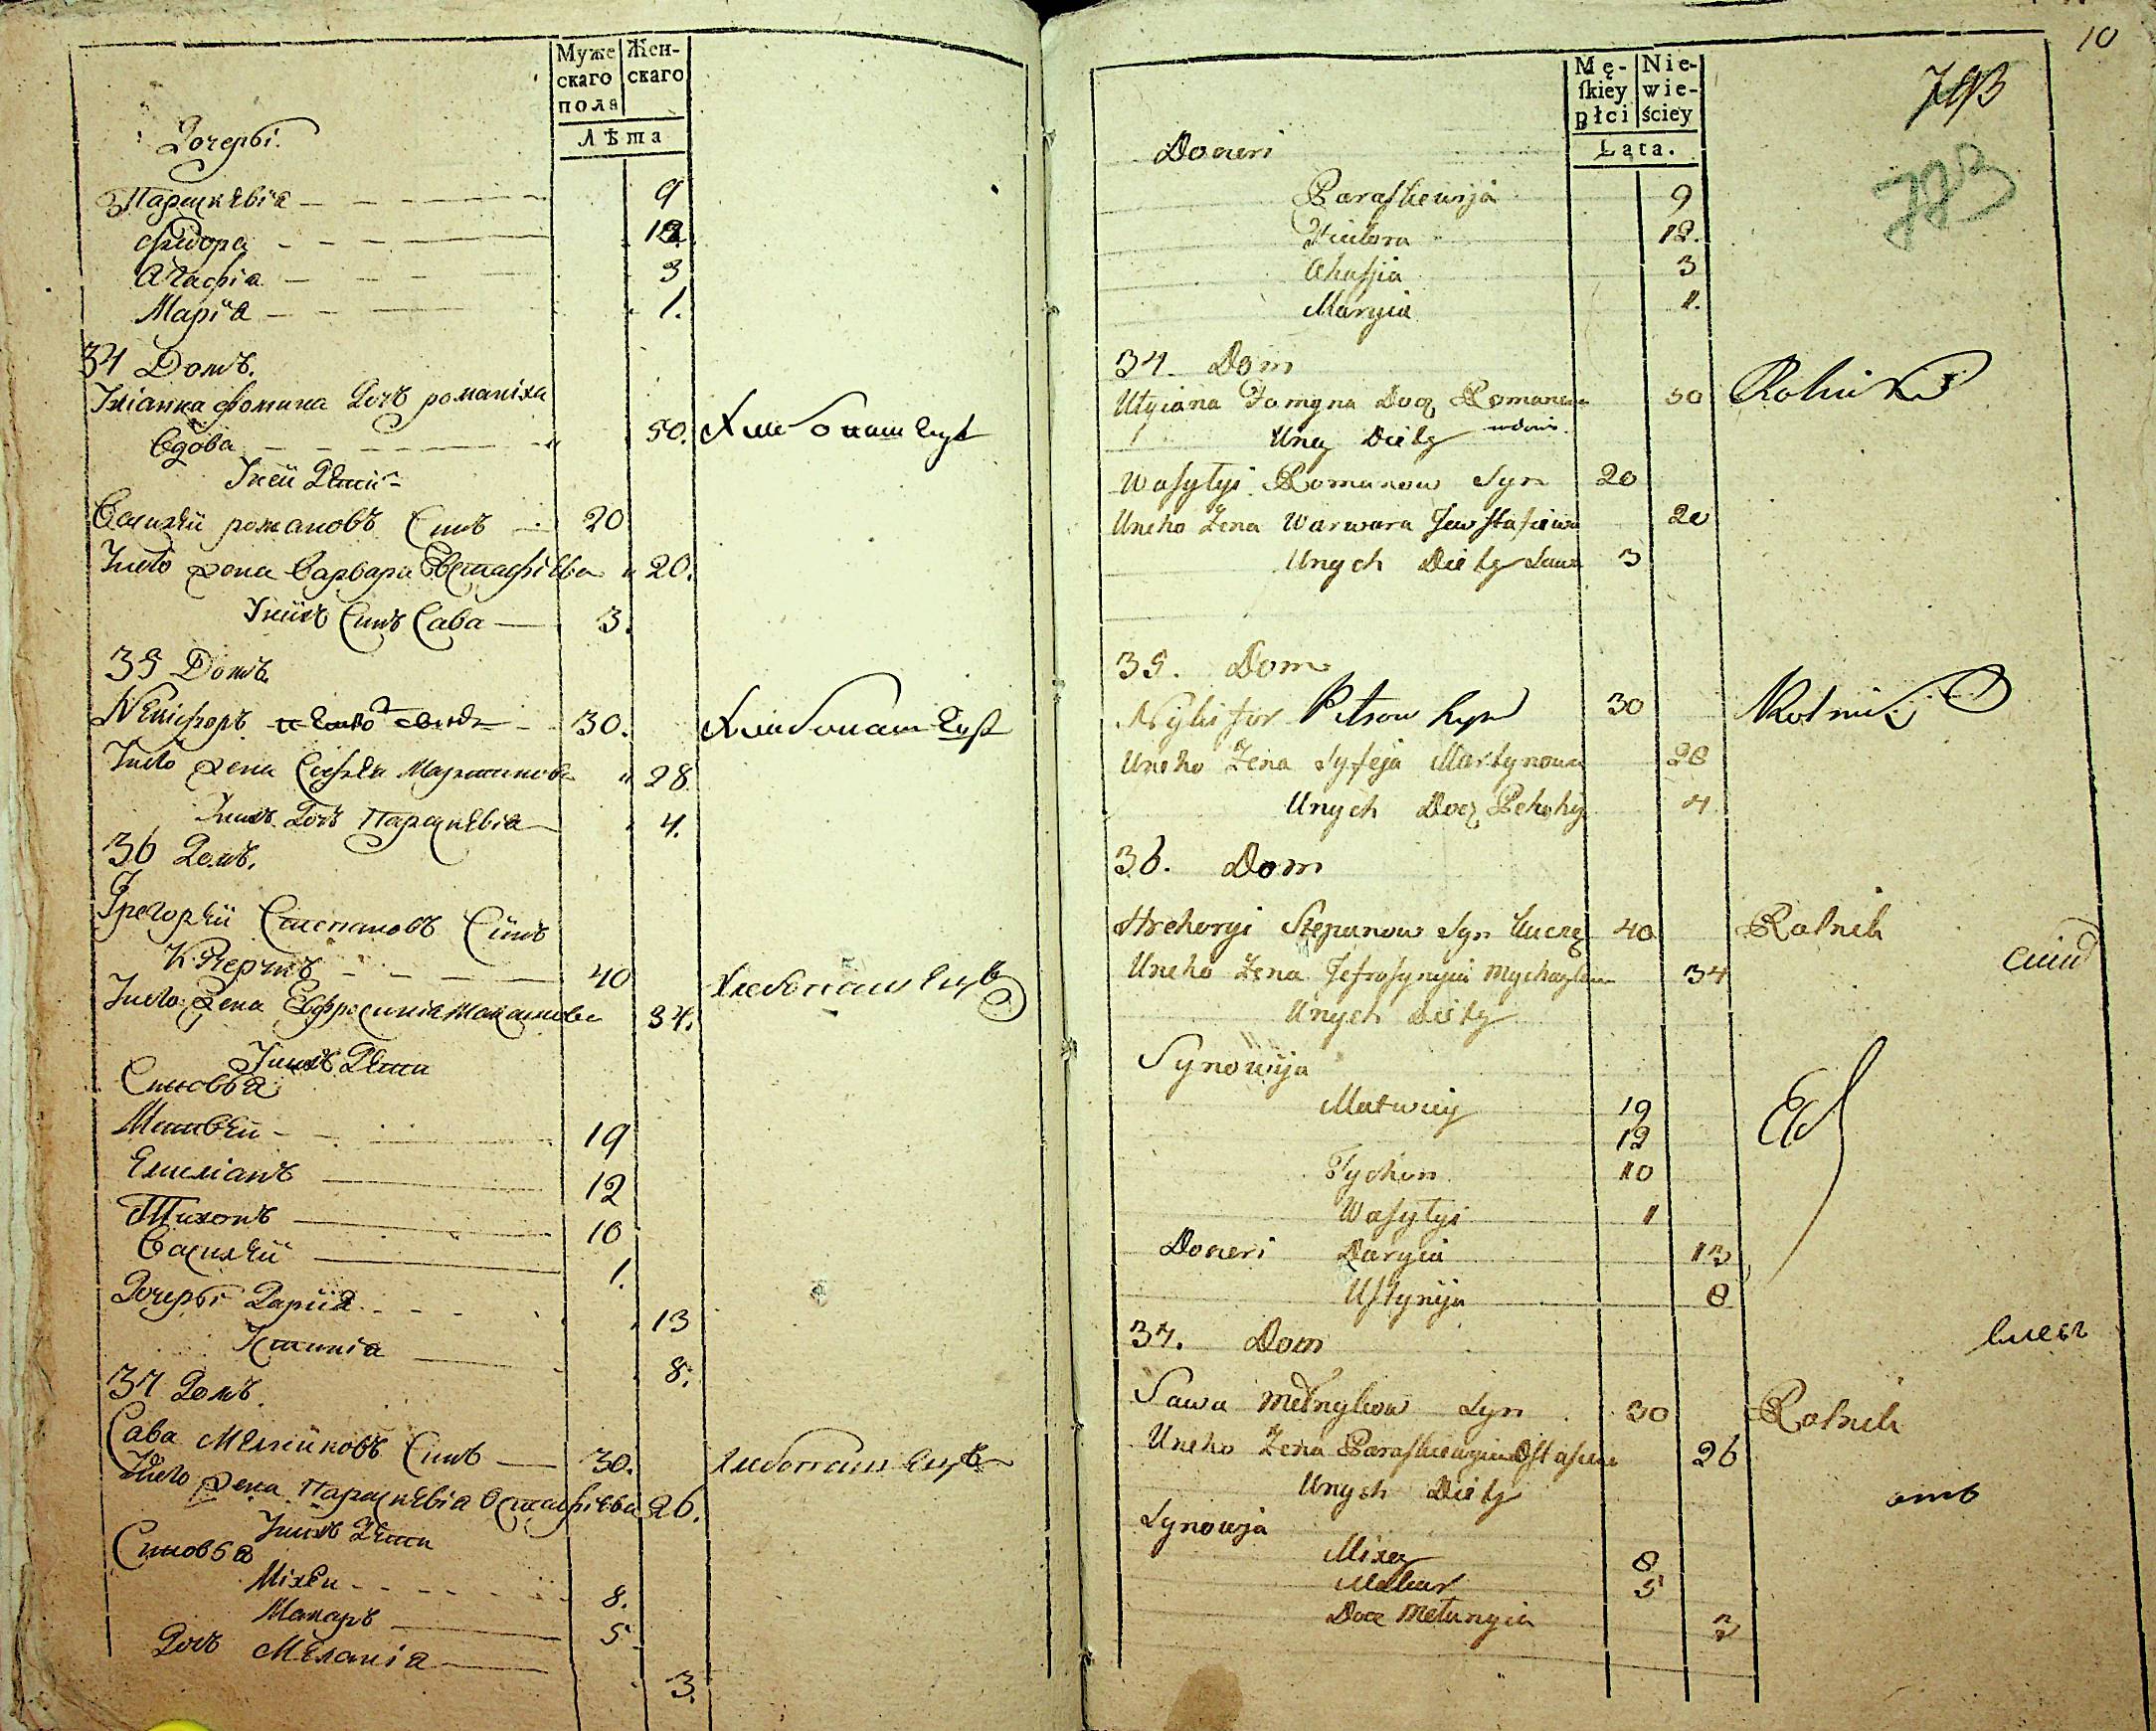 Муже Жен-
скаго скаго
пола
Лѣта
Дочеры
Параскевіа 9
Федора 12
Агафіа 3
Маріа 1.
34 Домъ.
Уліанна Фомина Дочъ романиха
Вдова 50. Хлебопашецъ
У неи Дѣти
Василии романовъ Синъ 20
У него жена Варвара Евстафіева 20.
У нихъ Синъ Сава 3.
35 Домъ.
Никифоръ 30. Хлебопашецъ
У него жена Мартинова 28.
У нихъ Дочъ Параскевіа 4.
36 Домъ.
Григории Степановъ Синъ
Кучеръ 40 Хлебопашецъ
У него жена Евфросиніа 34.
У нихъ Дѣти
Синовьа
Матвеи 19
Емиліанъ 12
Тихонъ 10
Василии 1.
Дочеры Дариіа 13
Устиніа 8.
37 Домъ.
Сава Мелниковъ Синъ 30. Хлебопашецъ
У него жена Параскевіа Остафіева 26.
У нихъ Дѣти
Синовьа
Міхеи 8.
Макаръ 5
Дочъ Меланіа 3.
10
Mę- Nie-
ſkiey wie-
płci ściey
Lata.
793
783
Doczeri
Paraskewija 9
Fiedora 12.
Ahafija 3
Maryia 1.
34. Dom
Ulyiana Fomyna Docz Romanicha 50 Rolnik
wdowa
Uney Diety
Wasylyi Romanow Syn 20
Uneho Żena Warwara Jewstafiewa 20
Unych Diety Sawa 3
35. Dom
Nykifor Petrow Syn 30 Rolnik
Uneho Żena Martynowa 28
Unych Docz 4
36. Dom
Hrehoryi Stepanow Syn 40 Rolnik
Uneho Żena Jefrosynyia 34
Unych Diety
Synowija
Matwiey 19
12
Tychon 10
Wasylyi 1
Doczeri Daryia 13
Ustynija 8
37. Dom
Sawa Melnykow Syn 30 Rolnik
Uneho Żena Paraskiewyia Ostafiewa 26
Unych Diety
Synowja
Mixey 8
Makar 5
Docz Melanyia 3